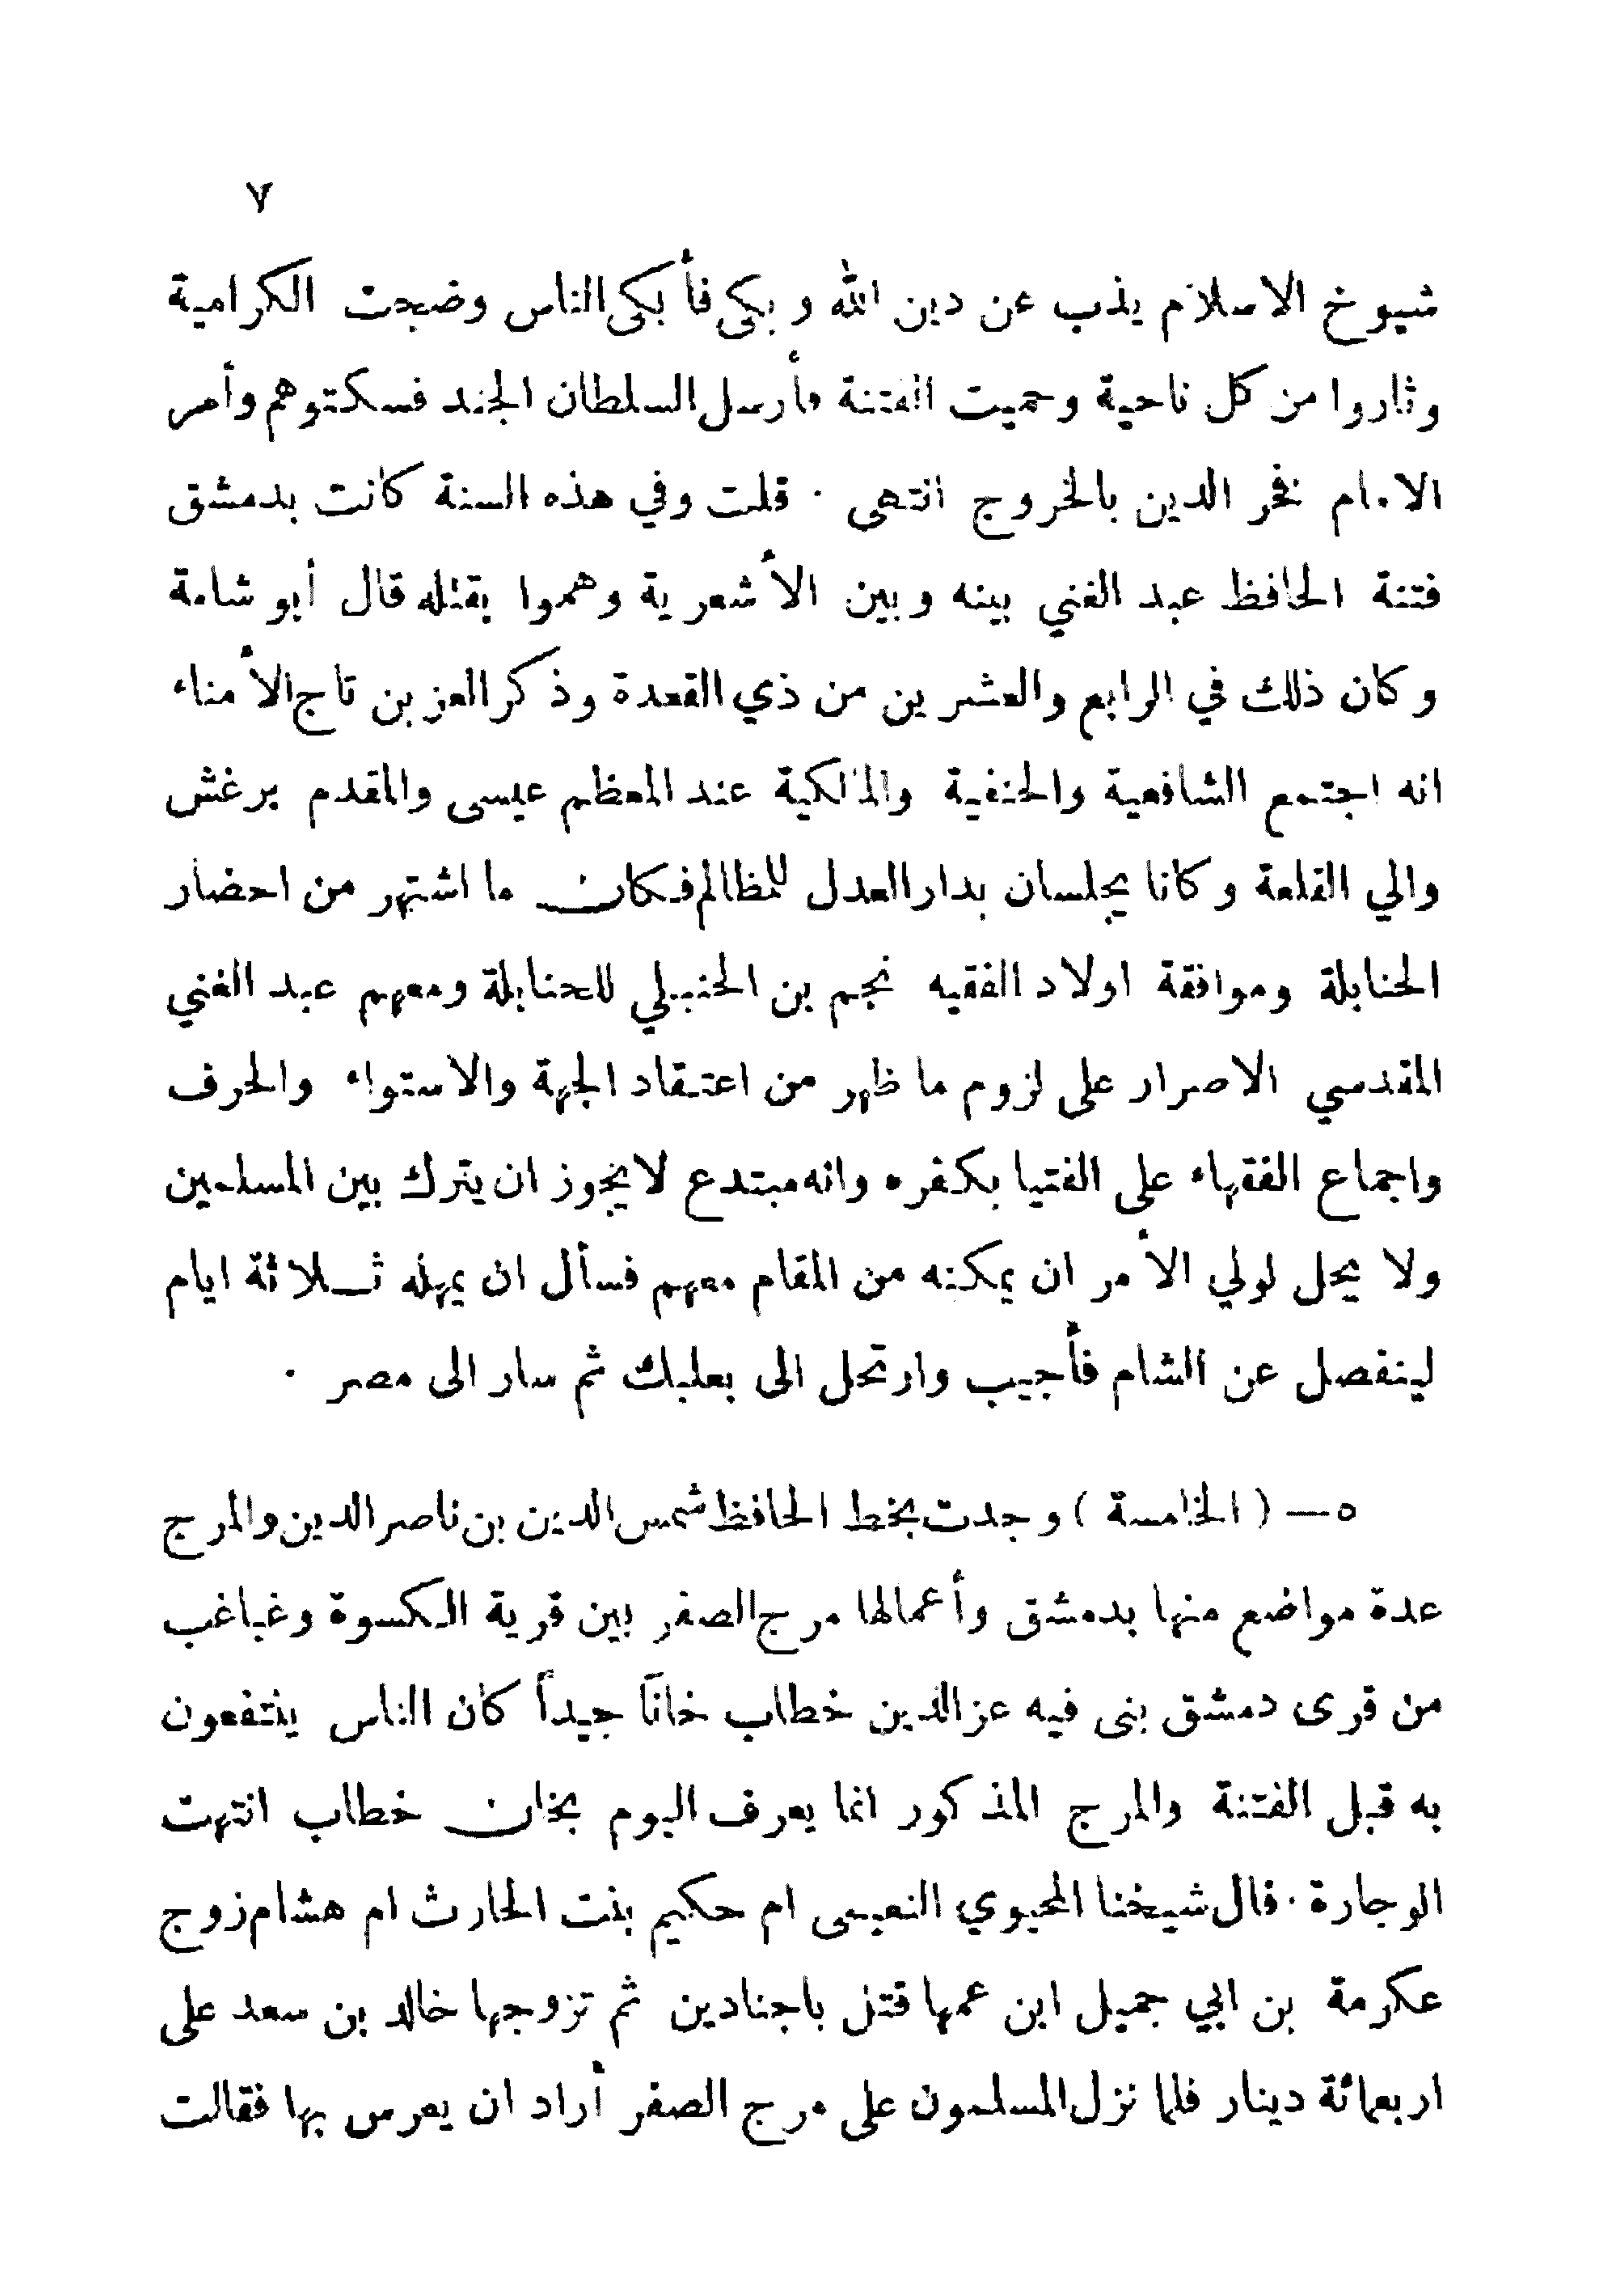 ٧
شيوخ الاسلام يذب عن دين الله و بكى فأ بكى الناس وضجت الكرامية
وثاروا من كل ناحية وحميت الفتنة فأرسل السلطان الجند فسكتوهم وأمر
الامام فخر الدين بالخروج انتهى ٠ قلت وفي هذه السنة كانت بدمشق
فتنة الحافظ عبد الغني بينه وبين الأشعرية وهموا بقتله قال أبو شامة
وكان ذلك في الرابع والعشرين من ذي القعدة وذكر العز بن تاج الأمناء
انه اجتمع الشافعية والحنفية والمالكية عند المعظم عيسى والمقدم برغش
والي القلعة وكانا يجلسان بدار العدل للمظالم فكان ما اشتهر من احضار
الحنابلة وموافقة اولاد الفقيه نجم بن الحنبلي للحنابلة ومعهم عبد الغني
المقدسي الاصرار على لزوم ما ظهر من اعتقاد الجهة والاستواء والحرف
واجماع الفقهاء على الفتيا بكفره وانه مبتدع لا يجوز ان يترك بين المسلمين
ولا يحل لولي الأمر ان يمكنه من المقام معهم فسأل ان يمهله ثلاثة ايام
لينفصل عن الشام فأجيب وارتحل الى بعلبك ثم سار الى مصر ٠
٥ — ( الخامسة ) وجدت بخط الحافظ شمس الدين بن ناصر الدين والمرج
عدة مواضع منها بدمشق وأعمالها مرج الصفر بين قرية الكسوة وغباغب
من قرى دمشق بنى فيه عز الدين خطاب خاناً جيداً كان الناس ينتفعون
به قبل الفتنة والمرج المذكور انما يعرف اليوم بخان خطاب انتهت
الوجارة ٠ قال شيخنا المحيوي النعيمى ام حكيم بنت الحارث ام هشام زوج
عكرمة بن ابي جميل ابن عمها قتل باجنادين ثم تزوجها خالد بن سعد على
اربعمائة دينار فلما نزل المسلمون على مرج الصفر أراد ان يعرس بها فقالت